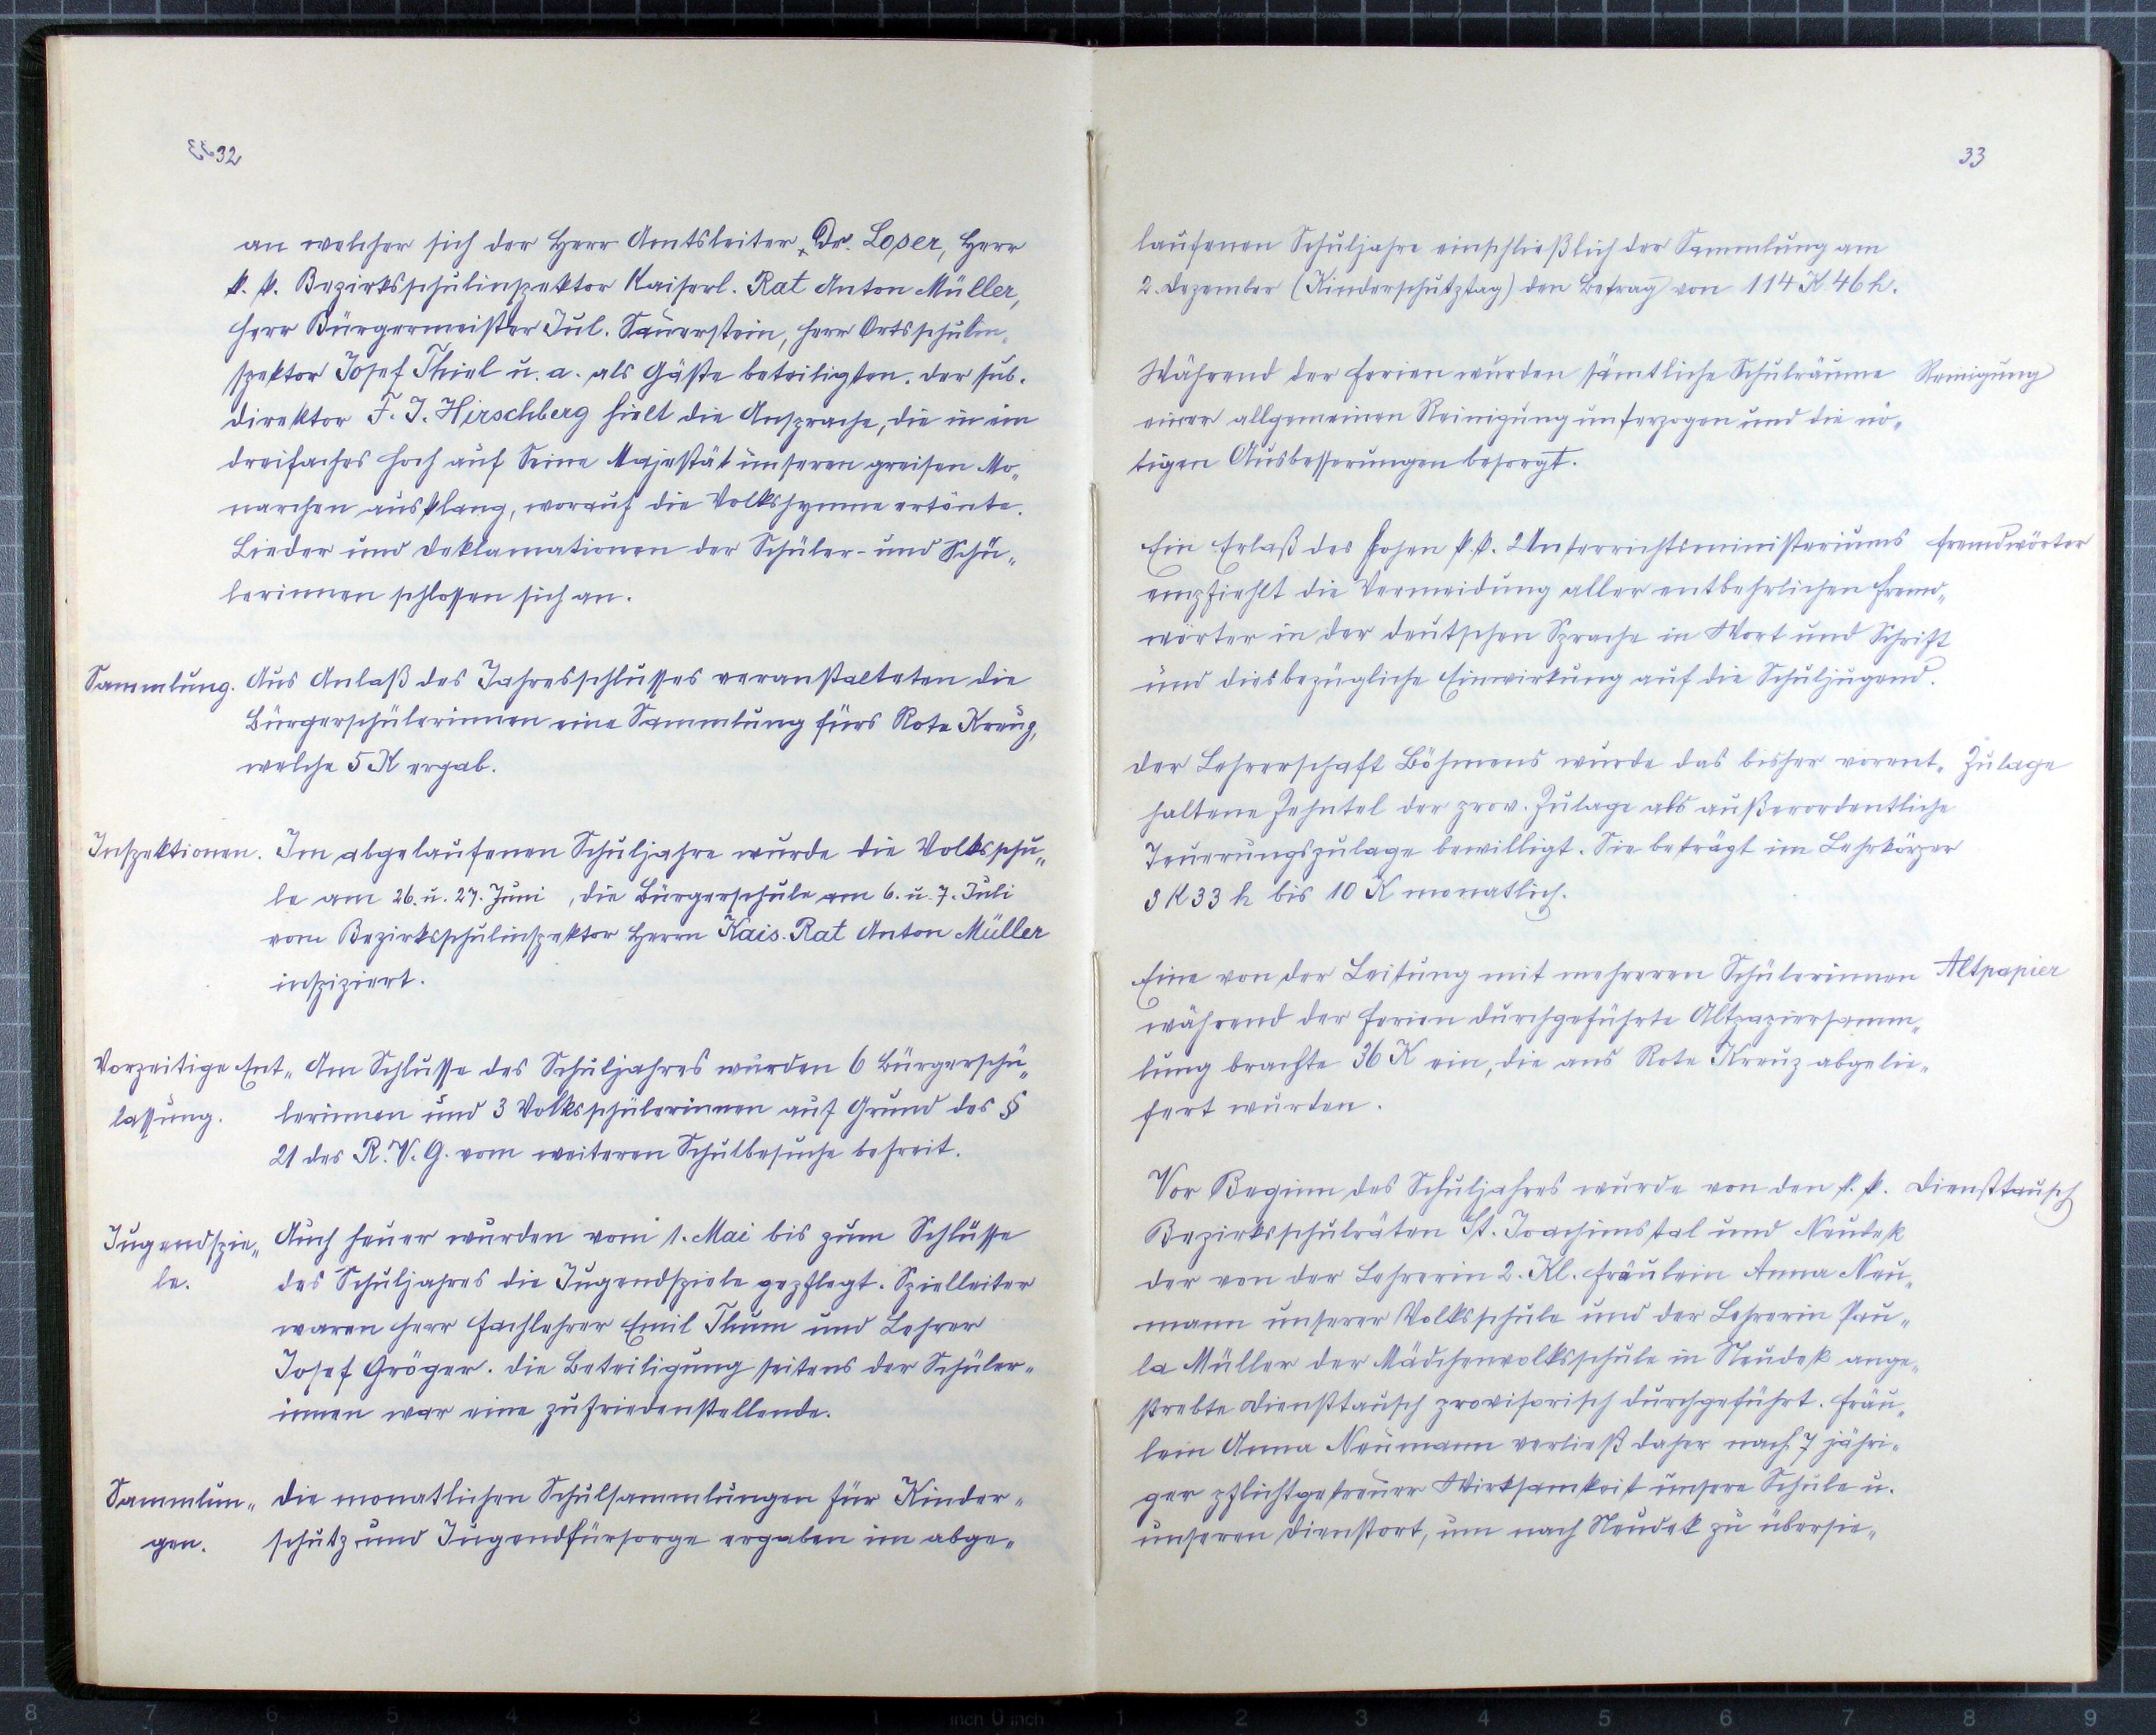 32
an welcher sich der Herr Amtsleiter Dr. Loser, Herr
k. k. Bezirksschulinspektor Kaiserl. Rat Anton Müller,
Herr Bürgermeister Jul. Sauerstein, Herr Ortsschulin-
spektor Josef Thiel u. a. als Gäste beteiligten. Der Sub-
direktor F. J. Hirschberg hielt die Ansprache, die in ein
dreifaches Hoch auf Seine Majestät unseren greisen Mo-
narchen ausklang, worauf die Volkshymne ertönte.
Lieder und Deklamationen der Schüler- und Schü-
lerinnen schlossen sich an.
Sammlung. Aus Anlaß des Jahresschlusses veranstalteten die
Bürgerschülerinnen eine Sammlung fürs Rote Kreuz,
welche 5 K ergab.
Inspektionen. Im abgelaufenen Schuljahre wurde die Volksschu-
le am 26. u. 27. Juni , die Bürgerschule am 6. u. 7. Juli
vom Bezirksschulinspektor Herrn Kais. Rat Anton Müller
inspiziert.
Vorzeitige Ent- Am Schlusse des Schuljahres wurden 6 Bürgerschü-
lassung. lerinnen und 3 Volksschülerinnen auf Grund des §
21 des R. V. G. vom weiteren Schulbesuche befreit.
Jugendspie- Auch heuer wurden vom 1. Mai bis zum Schlusse
le. des Schuljahres die Jugendspiele gepflegt. Spielleiter
waren Herr Fachlehrer Emil Thum und Lehrer
Josef Gröger. Die Beteiligung seitens der Schüler-
innen war eine zufriedenstellende.
Sammlun- Die monatlichen Schulsammlungen für Kinder-
gen. schutz und Jugendfürsorge ergaben im abge-
33
laufenen Schuljahre einschließlich der Sammlung am
2. Dezember (Kinderschutztag) den Betrag von 114 K 46 h.
Während der Ferien wurden sämtliche Schulräume Reinigung
einer allgemeinen Reinigung unterzogen und die nö-
tigen Ausbesserungen besorgt.
Ein Erlaß des hohen k. k. Unterrichtsministeriums Fremdwörter
empfiehlt die Vermeidung aller entbehrlichen Fremd-
wörter in der deutschen Sprache in Wort und Schrift
und diesbezügliche Einwirkung auf die Schuljugend.
Der Lehrerschaft Böhmens wurde das bisher vorent- Zulage
haltene Zehntel der prov. Zulage als außerordentliche
Teuerungszulage bewilligt. Sie beträgt im Lehrkörper
3 K 33 h bis 10 K monatlich.
Eine von der Leitung mit mehreren Schülerinnen Altpapier
während der Ferien durchgeführte Altpapiersamm-
lung brachte 36 K ein, die ans Rote Kreuz abgelie-
fert wurden.
Vor Beginn des Schuljahres wurde von den k. k. Diensttausch
Bezirksschulräten St. Joachimstal und Neudek
der von der Lehrerin 2. Kl. Fräulein Anna Neu-
mann unserer Volksschule und der Lehrerin Pau-
la Müller der Mädchenvolksschule in Neudek ange-
strebte Diensttausch provisorisch durchgeführt. Fräu-
lein Anna Neumann verließ daher nach 7 jähri-
ger pflichtgetreuer Wirksamkeit unsere Schule u.
unseren Dienstort, um nach Neudek zu übersie-